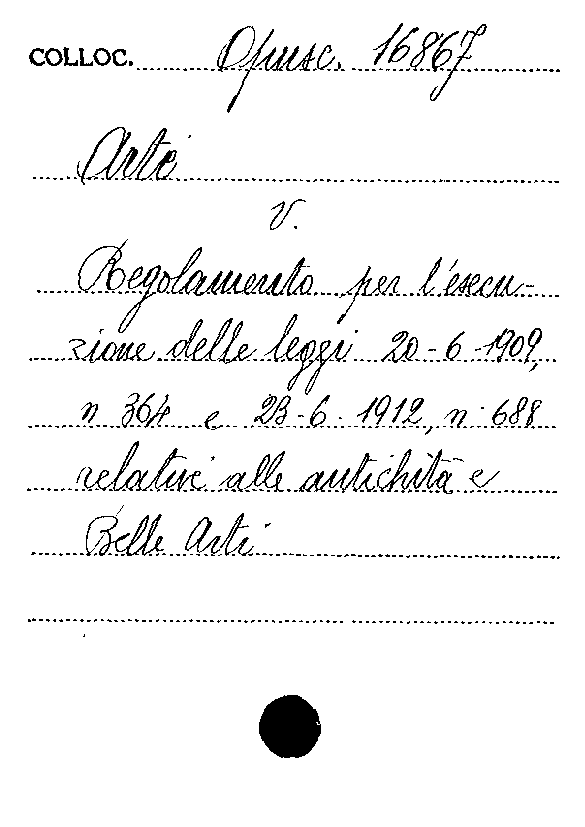 COLLOC. Opusc. 16867
Arte
V.
Regolamento per l'esecu-
zione delle leggi 20-6-1909,
n 364 e 23-6-1912, n. 688
relative alle antichità e
Belle Arti